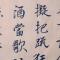 擬把疏狂
酒當歌